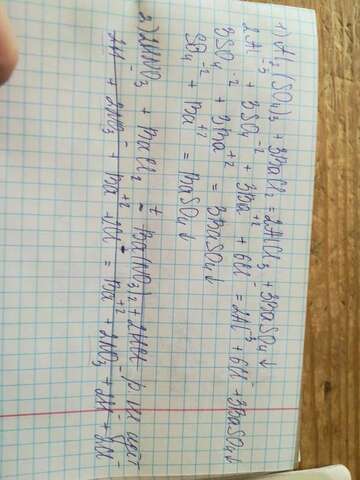 1) Al₂(SO₄)₃ + 3BaCl₂ = 2AlCl₃ + 3BaSO₄↓
2Al⁻³ + 3SO₄⁻² + 3Ba⁺² + 6Cl⁻ = 2Al⁻³ + 6Cl⁻ + 3BaSO₄↓
3SO₄⁻² + 3Ba⁺² = 3BaSO₄↓
SO₄⁻² + Ba⁺² = BaSO₄↓
2) 2HNO₃ + BaCl₂ = Ba(NO₃)₂ + 2HCl р не идёт
2H⁺ + 2NO₃⁻ + Ba⁺² + 2Cl⁻ = Ba⁺² + 2NO₃⁻ + 2H⁺ + 2Cl⁻